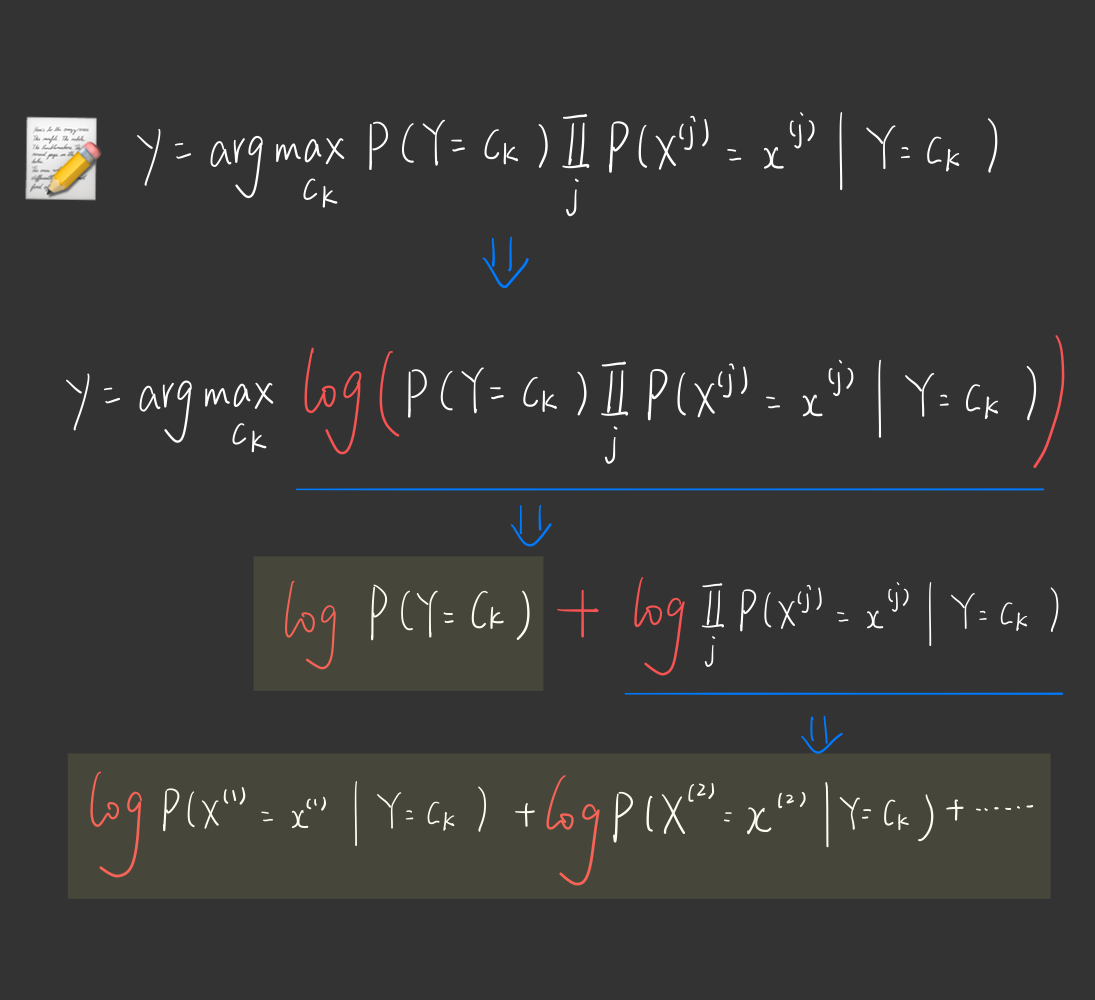 y = arg max P(Y = cₖ) ∏ P(X⁽ʲ⁾ = x⁽ʲ⁾ | Y = cₖ)
cₖ j
y = arg max log(P(Y = cₖ) ∏ P(X⁽ʲ⁾ = x⁽ʲ⁾ | Y = cₖ))
cₖ j
log P(Y = Cₖ) + log ∏ P(X⁽ʲ⁾ = x⁽ʲ⁾ | Y = cₖ)
j
log P(X⁽¹⁾ = x⁽¹⁾ | Y = cₖ) + log P(X⁽²⁾ = x⁽²⁾ | Y = cₖ) + ......